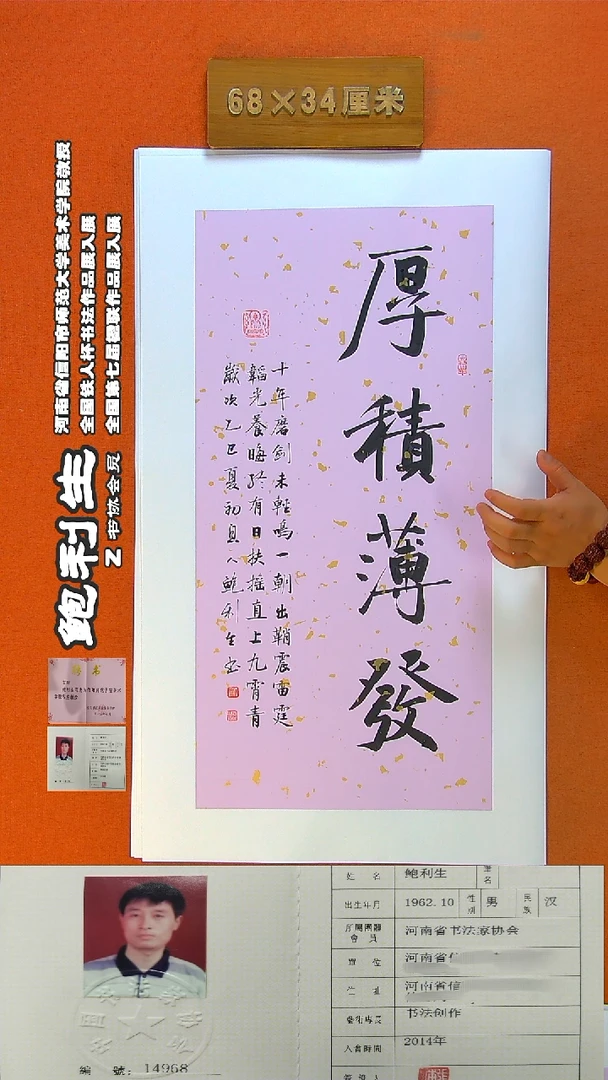 68×34厘米
厚積薄發
十年磨剑未轻鳴一朝出鞘震雷霆
韜光養晦於有日扶摇直上九霄青
歲次乙巳夏初息人鲍利生书
河南省信阳市师范大学美术学院教授
全国铁人杯书法作品展入展
全国第七届楹联作品展入展
鲍利生
Z 书协会员
姓名 鲍利生
出生年月 1962.10 性别 男 民族 汉
河南省书法家协会
會員
單位 河南省信
住址 河南省信
藝術專長 书法创作
入會時間 2014年
編號：14968